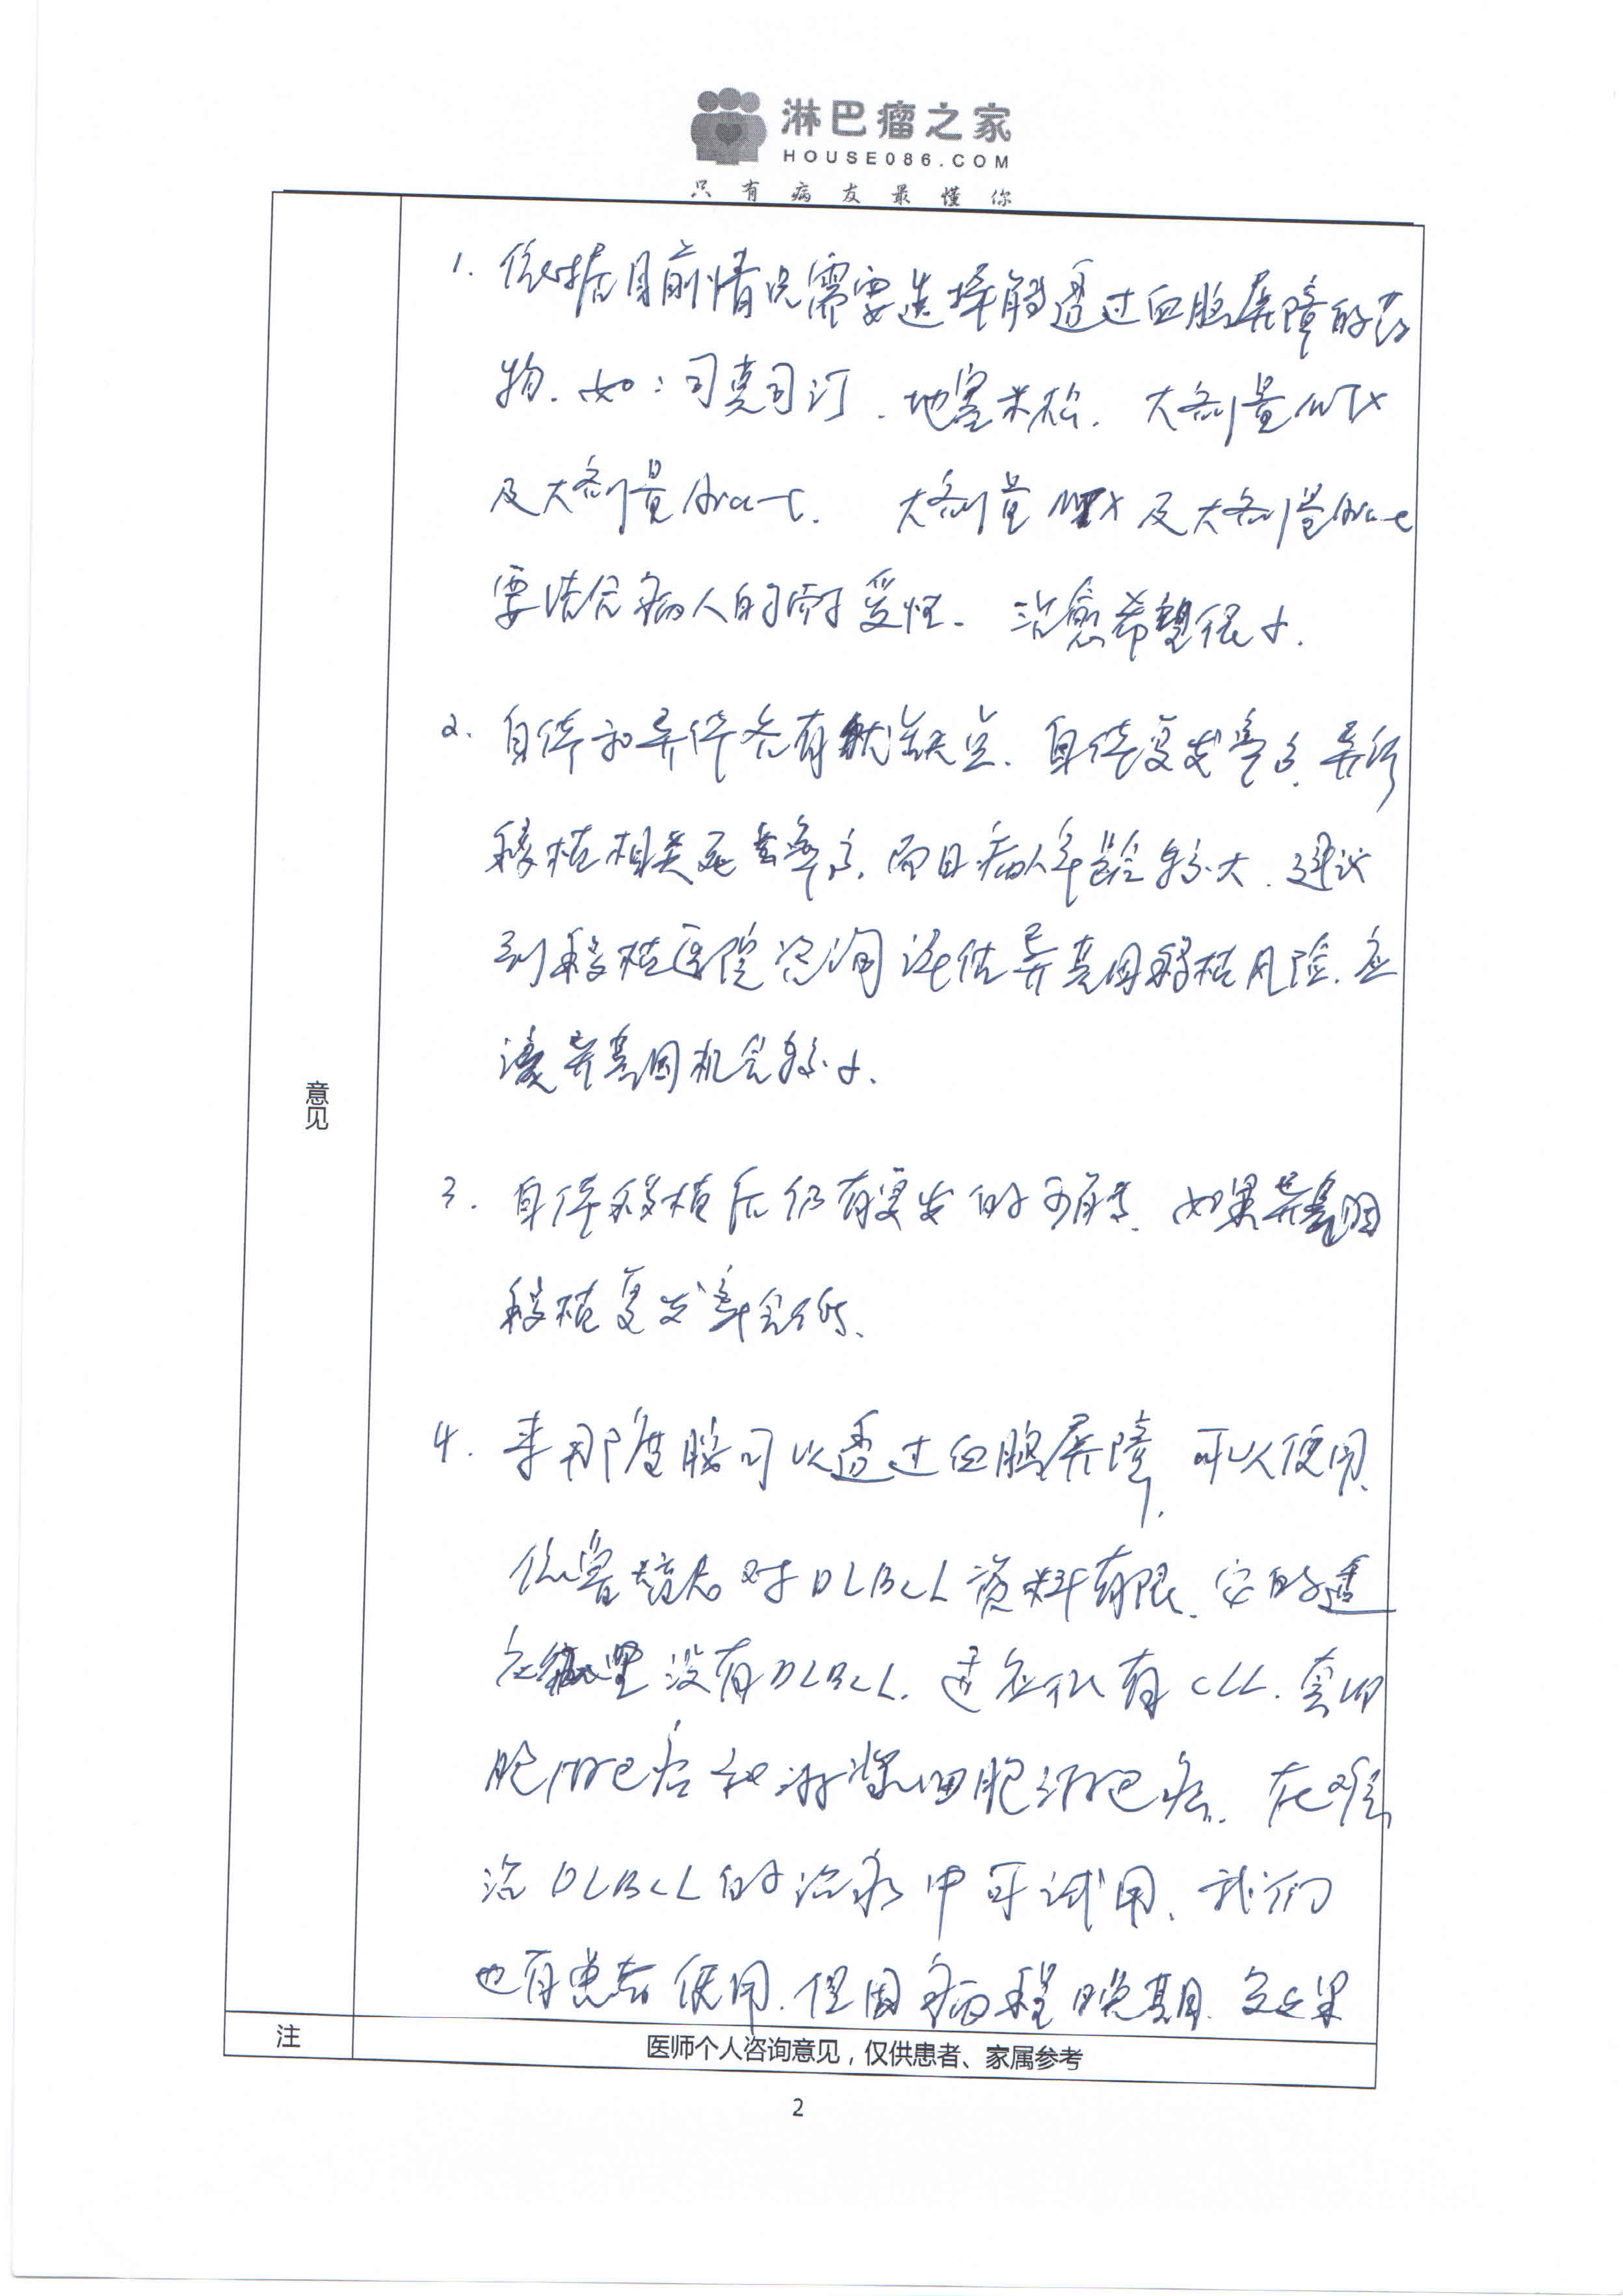 淋巴瘤之家
HOUSE086.COM
只有病友最懂你
1. 依据目前情况需要选择能透过血脑屏障的药
物. 如: 司莫司汀. 地塞米松. 大剂量MTX
及大剂量Ara-C. 大剂量MTX及大剂量Ara-c
要结合病人的耐受性. 治愈希望很小.
2. 自体和异体各有优缺点. 自体复发率高. 异体
移植相关死亡率高. 而且病人年龄较大. 建议
到移植医院咨询评估异基因移植风险. 应
该异基因机会较小.
3. 自体移植后仍有复发的可能. 如果异基因
移植复发率会低.
4. 来那度胺可以透过血脑屏障, 可以使用.
依鲁替尼对DLBCL资料有限. 它的适
应症里没有DLBCL. 适应症有CLL. 套细
胞淋巴瘤和淋浆细胞淋巴瘤. 在难
治DLBCL的治疗中可试用. 我们
也有患者使用. 但因病程晚期. 效果
意见
注
医师个人咨询意见，仅供患者、家属参考
2